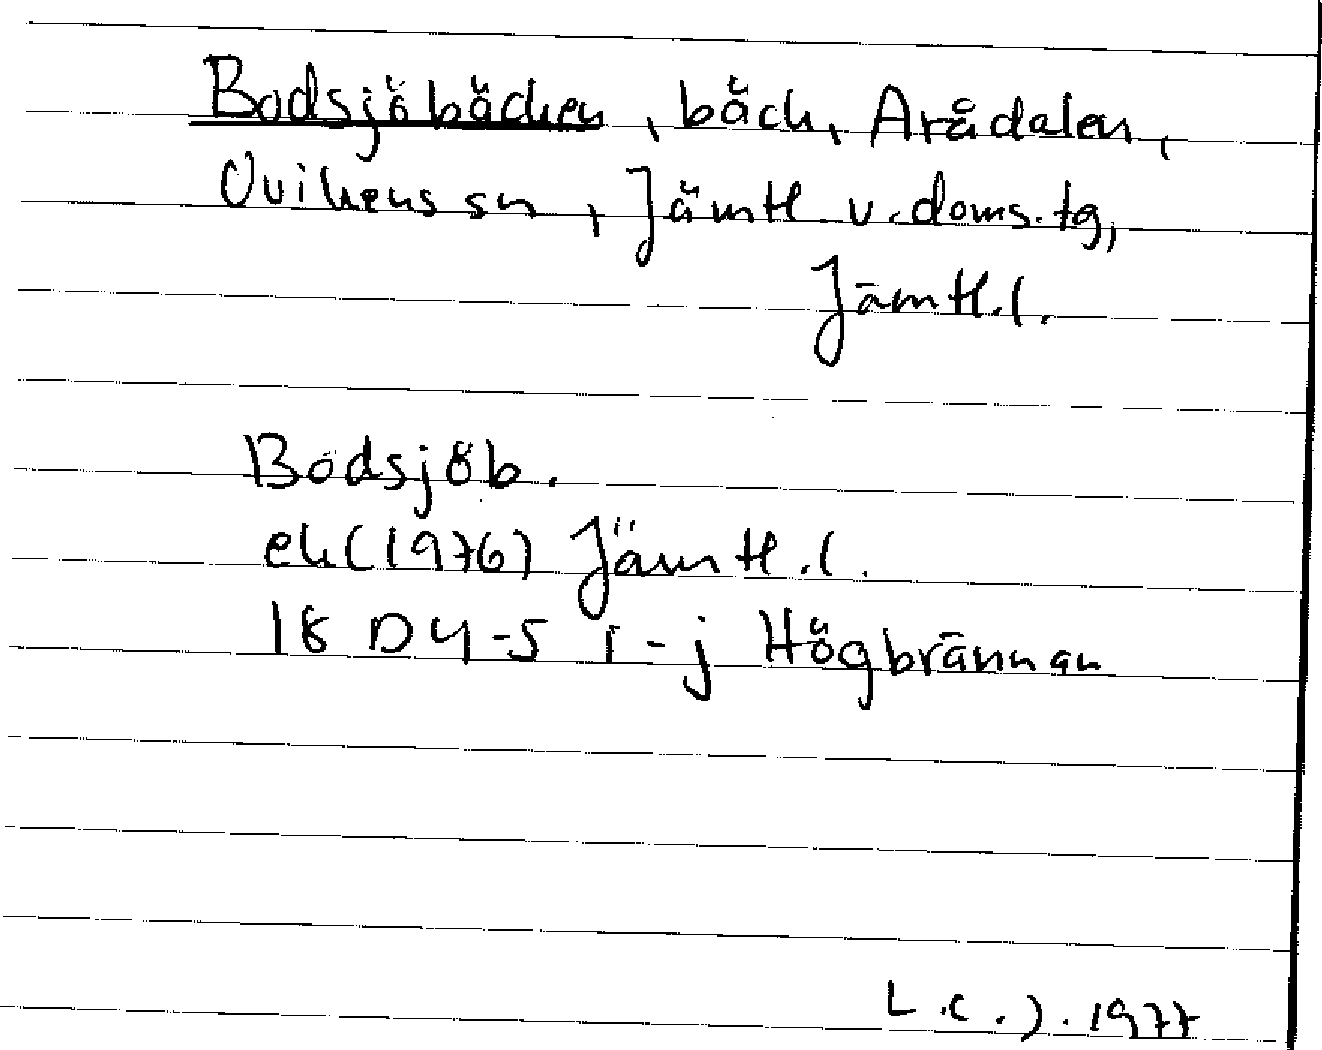 Bodsjöbäcken, bäck, Arådalen,
Ovikens sn, Jämtl v. doms. tg,
Jämtl. l.
Bodsjöb.
ek(1976) Jämtl. l.
18 D 4-5 i-j Högbrännan
L.C.J. 1977